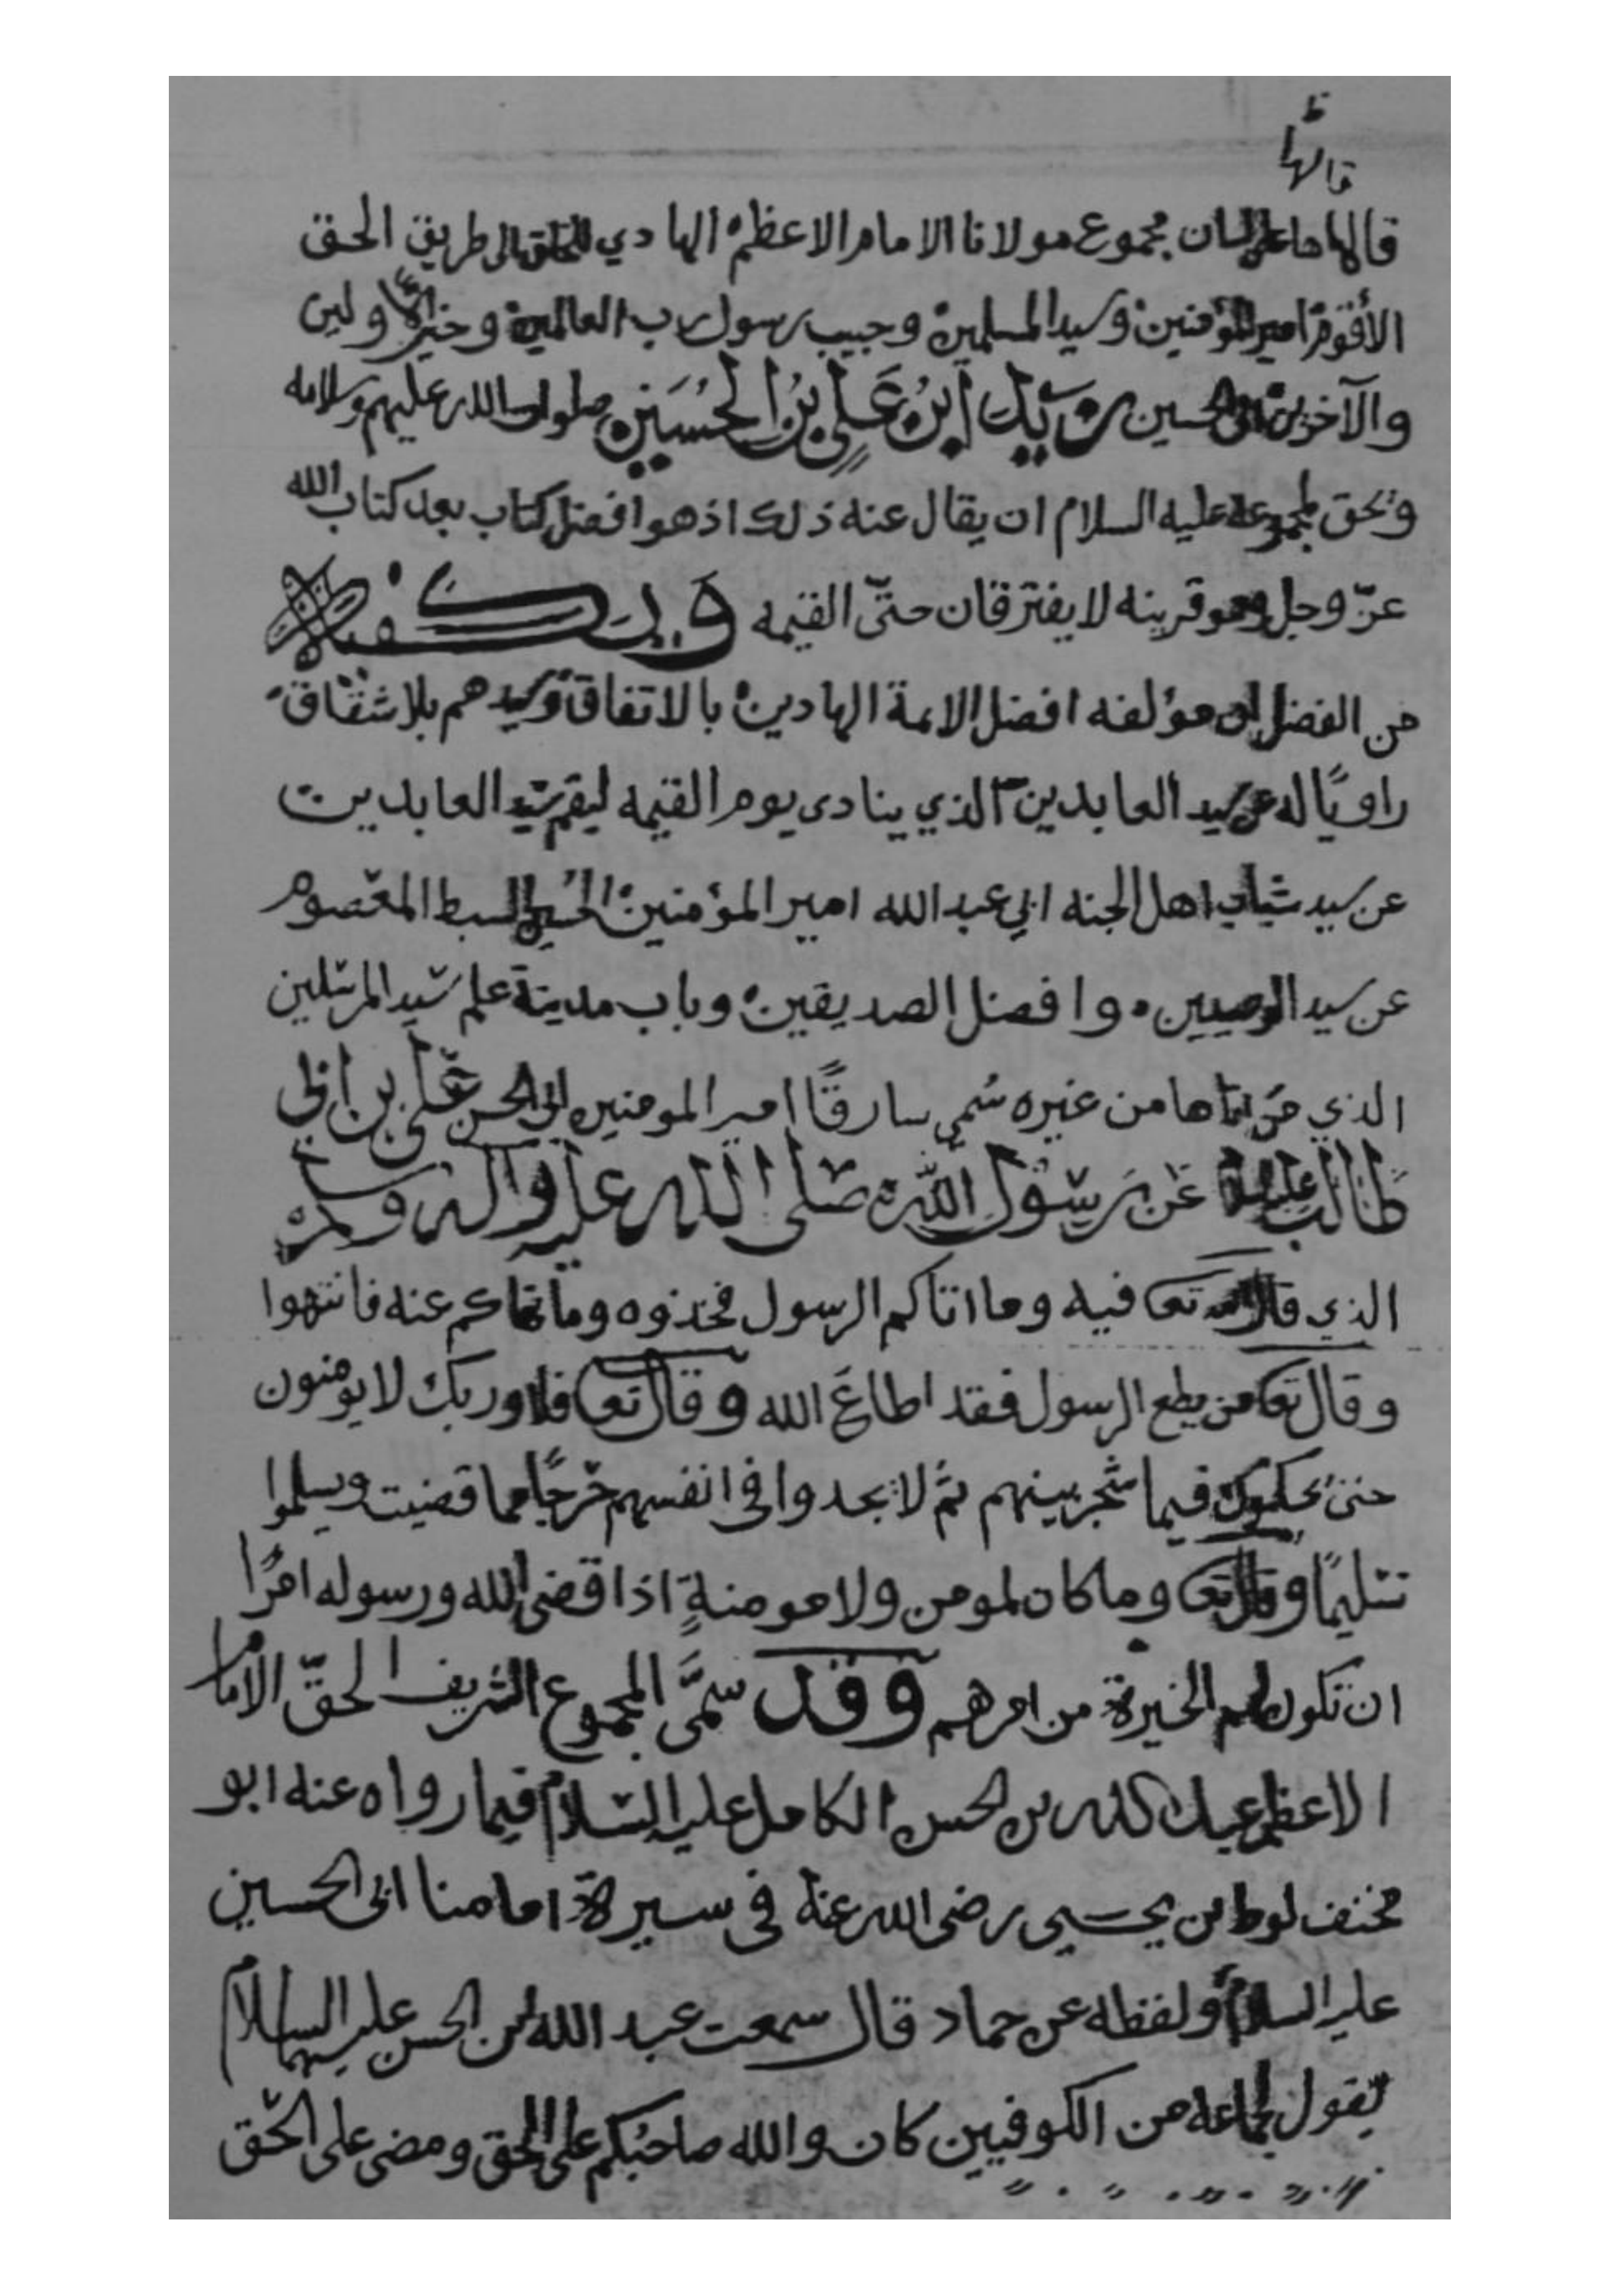 قالها
قالها على لسان مجموع مولانا الامام الاعظم الهادي للخلق الى طريق الحق
الأقوم امير المؤمنين وسيد المسلمين وحبيب رسول رب العالمين وخير الاولين
والآخرين ابي الحسين زيد ابن علي بن الحسين صلوات الله عليهم وسلامه
وبحق لمجموعه عليه السلام ان يقال عنه ذلك اذ هو افضل كتاب بعد كتاب الله
عزّ وجل وهو قرينه لا يفترقان حتى القيمه ويكفيك
من الفضل ان مؤلفه افضل الائمة الهادين بالاتفاق وسيدهم بلا شقاق
راويًا له عن سيد العابدين الذي ينادى يوم القيمه ليقم سيد العابدين
عن سيد شباب اهل الجنه ابي عبد الله امير المؤمنين الحسين السبط المعصوم
عن سيد الوصيين وافضل الصديقين وباب مدينة علم سيد المرسلين
الذي من اتاها من غيره سُمي سارقًا امير المومنين ابي الحسن علي بن ابي
طالب عليه السلام عن رسول الله صلى الله عليه واله وسلم
الذي قال الله تعا فيه وما اتاكم الرسول فخذوه وما نهاكم عنه فانتهوا
وقال تعا من يطع الرسول فقد اطاعَ الله وقال تعا فلا وربك لا يومنون
حتى يحكموك فيما شجر بينهم ثم لا يجدوا في انفسهم حرجًا مما قضيت ويسلموا
تسليمًا وقال تعا وما كان لمومن ولا مومنةٍ اذا قضى الله ورسوله امرًا
ان تكون لهم الخيرة من امرهم وقد سمَّى المجموع الشريف الحقّ الامام
الاعظم عبد الله بن الحسن الكامل عليه السلام فيما رواه عنه ابو
مخنف لوط بن يحيى رضى الله عنه في سيرة امامنا ابي الحسين
عليه السلام ولفظه عن حماد قال سمعت عبد الله بن الحسن عليهما السلام
يقول لجماعة من الكوفيين كان والله صاحبكم على الحق ومضى على الحق